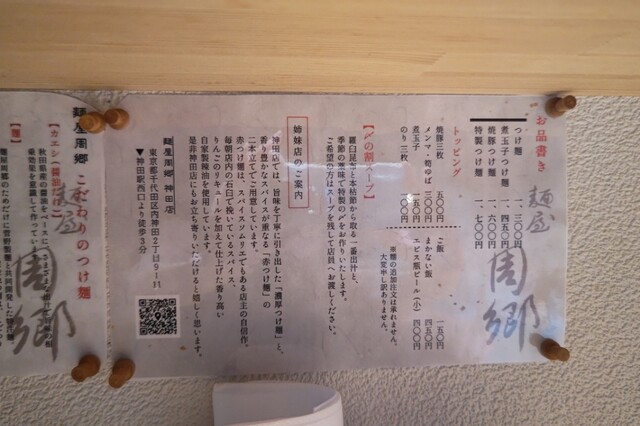 お品書き
麺屋 周郷
つけ麺 一、三〇〇円
煮玉子つけ麺 一、四五〇円
焼豚つけ麺 一、六〇〇円
特製つけ麺 一、七〇〇円
トッピング
焼豚三枚 五〇〇円
メンマ・筍ゆば 三〇〇円
煮玉子 一五〇円
のり三枚 一〇〇円
ご飯 一五〇円
まかない飯 四五〇円
エビス瓶ビール(小) 四〇〇円
※麺の追加注文は承れません。
大変申し訳ありません。
【〆の割スープ】
羅臼昆布と本枯節から取る一番出汁と、
季節の薬味で特製の〆をお作りいたします。
ご希望の方はスープを残して店員へお渡しください。
姉妹店のご案内
神田店では、旨味を丁寧に引き出した「濃厚つけ麺」と、
香り豊かなスパイスが重なる「赤つけ麺」の
二本立てでご用意しています。
赤つけ麺は、スパイスソムリエでもある店主の自信作。
毎朝店内の石臼で挽いているスパイス、
りんごのリキュールを加えて仕上げた香り高い
自家製辣油を使用しています。
是非神田店にもお立ち寄りいただけると嬉しく思います。
麺屋周郷 神田店
東京都千代田区内神田2丁目9-1 1F
▼神田駅西口より徒歩3分
麺屋周郷 こだわりのつけ麺
周郷
【カエシ(醤油
秋田県の醤油をベースに
【麺】
麺屋周郷のためだけに菅野製麺と共同開発した